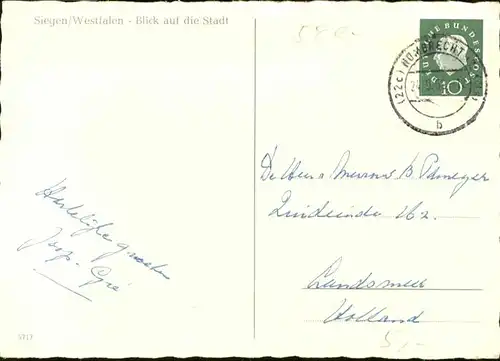 Siegen/Westfalen - Blick auf die Stadt
5,-
DEUTSCHE BUNDESPOST
10
(22c) NÜMBRECHT
b
Hartelijke groeten
Joop - Gré
De Heer & Mevrouw B
Zuideinde 162
Landsmeer
Holland
5,-